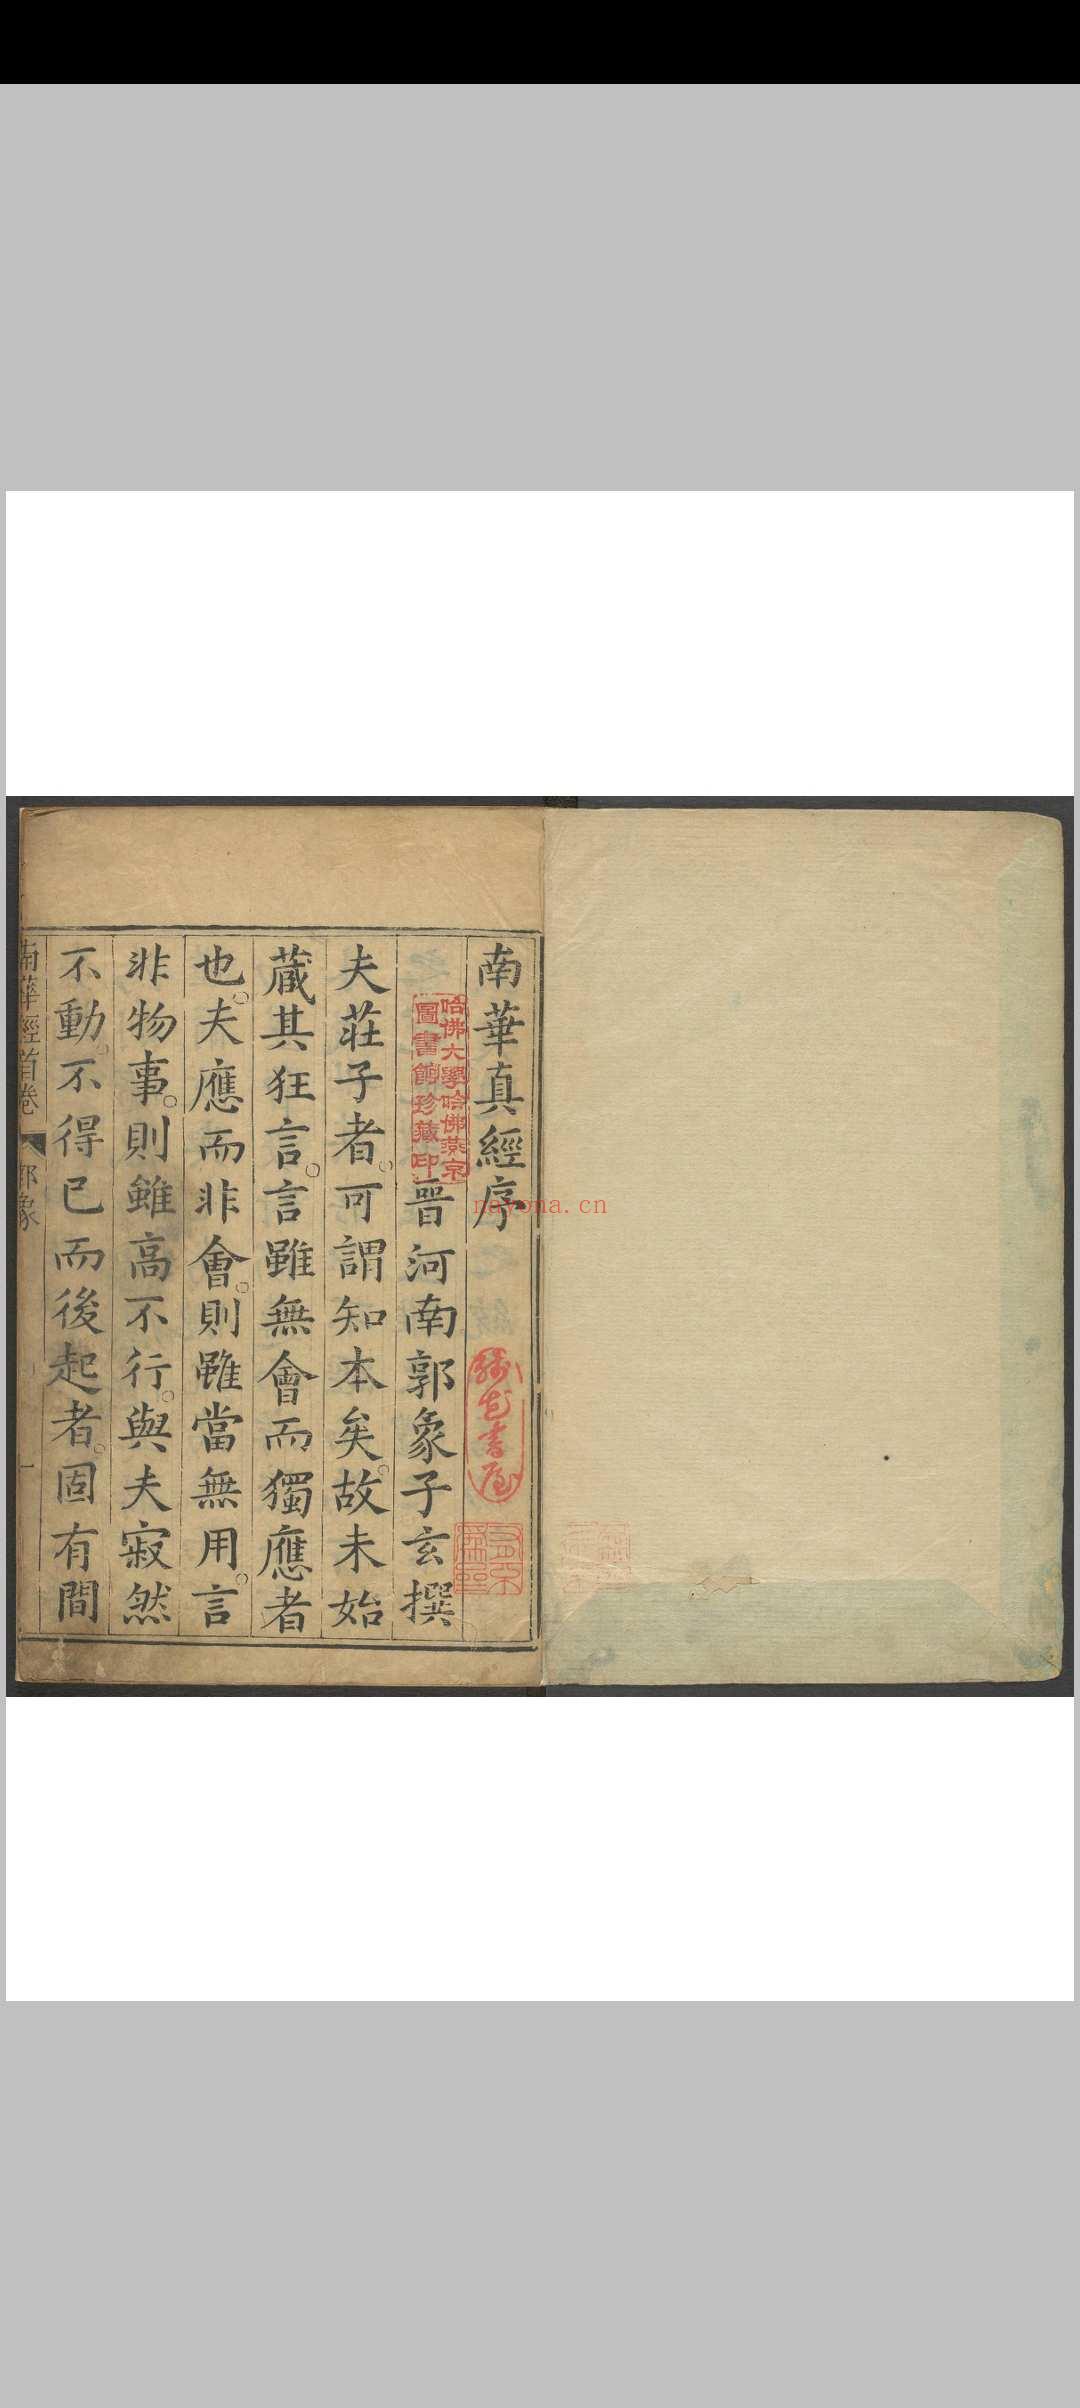 南華真經序
晉河南郭象子玄撰
夫莊子者可謂知本矣故未始
藏其狂言言雖無會而獨應者
也夫應而非會則雖當無用言
非物事則雖高不行與夫寂然
不動不得已而後起者固有間
南華經首卷 郭象 一
哈佛大學哈佛燕京
圖書館珍藏印
nayona.cn